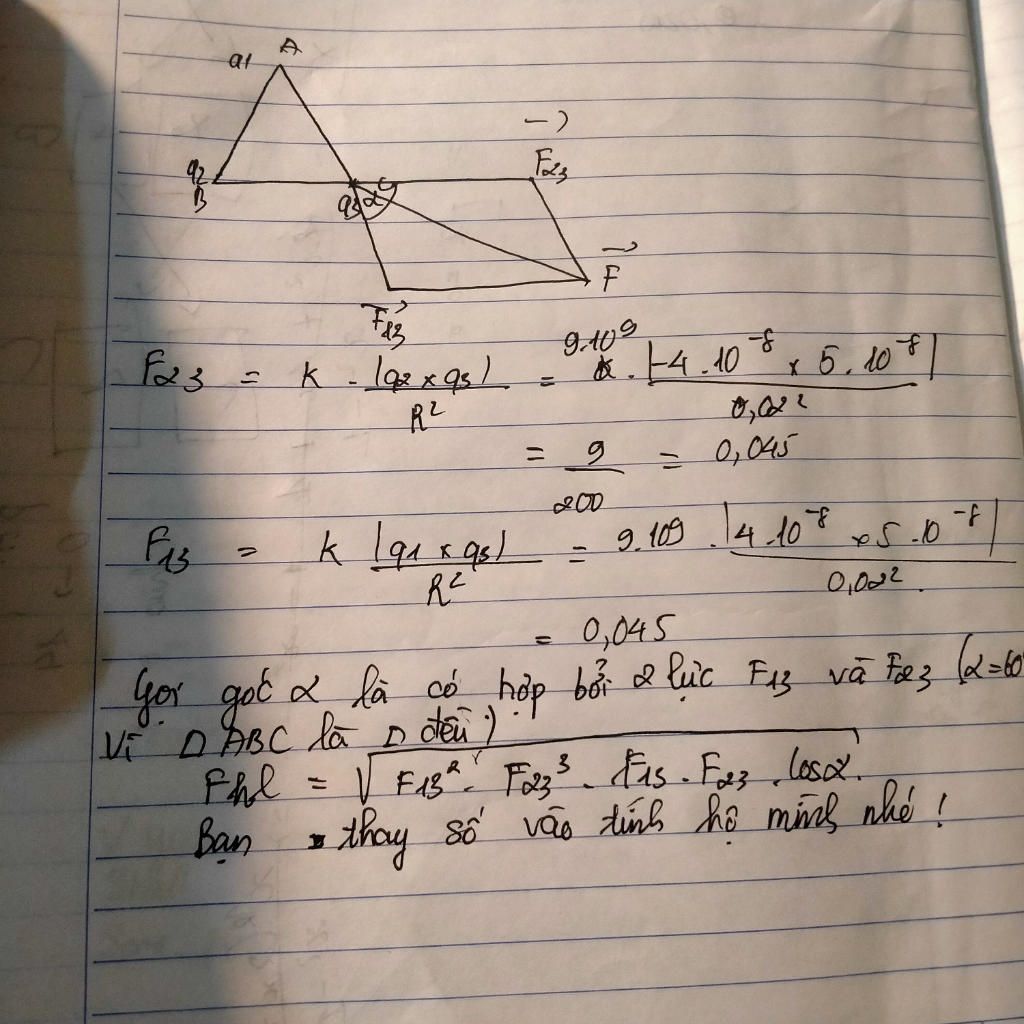 q1 A
q2 B
q3 α
F23
F
F13
F23 = K . |q2 x q3| / R² = 9.10⁹ . |-4.10⁻⁸ x 5.10⁻⁸| / 0,02²
= 9/200 = 0,045
F13 = K |q1 x q3| / R² = 9.109 . |4.10⁻⁸ x 5.10⁻⁸| / 0,02².
= 0,045
Gọi góc α là có hợp bởi 2 lực F13 và F23 (α=60°
Vì Δ ABC là Δ đều)
Fhl = √F13² - F23³ - F13 . F23 . cosα.
Bạn thay số vào tính hộ mình nhé !